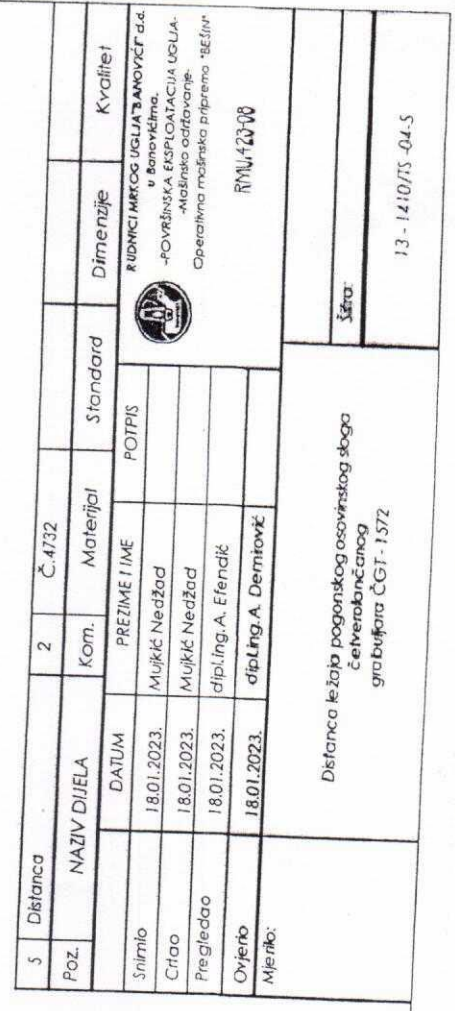 5 Distanca 2 Č.4732
Poz. NAZIV DIJELA Kom. Materijal Standard Dimenzije Kvalitet
DATUM PREZIME I IME POTPIS
Snimio 18.01.2023. Mujkić Nedžad
Crtao 18.01.2023. Mujkić Nedžad
Pregledao 18.01.2023. dipl.ing.A. Efendić
Ovjerio 18.01.2023. dipl.ing.A. Demirović
RUDNICI MRKOG UGLJA"BANOVIĆI" d.d.
u Banovićima.
-POVRŠINSKA EKSPLOATACIJA UGLJA-
-Mašinsko održavanje-
Operativna mašinska priprema "BEŠIN"
RMU.423-08
Mjerilo:
Distanca ležaja pogonskog osovinskog sloga
četverolančanog
grabuljara ČGT - 1572
Šifra:
13 - 1410/TS -04-5